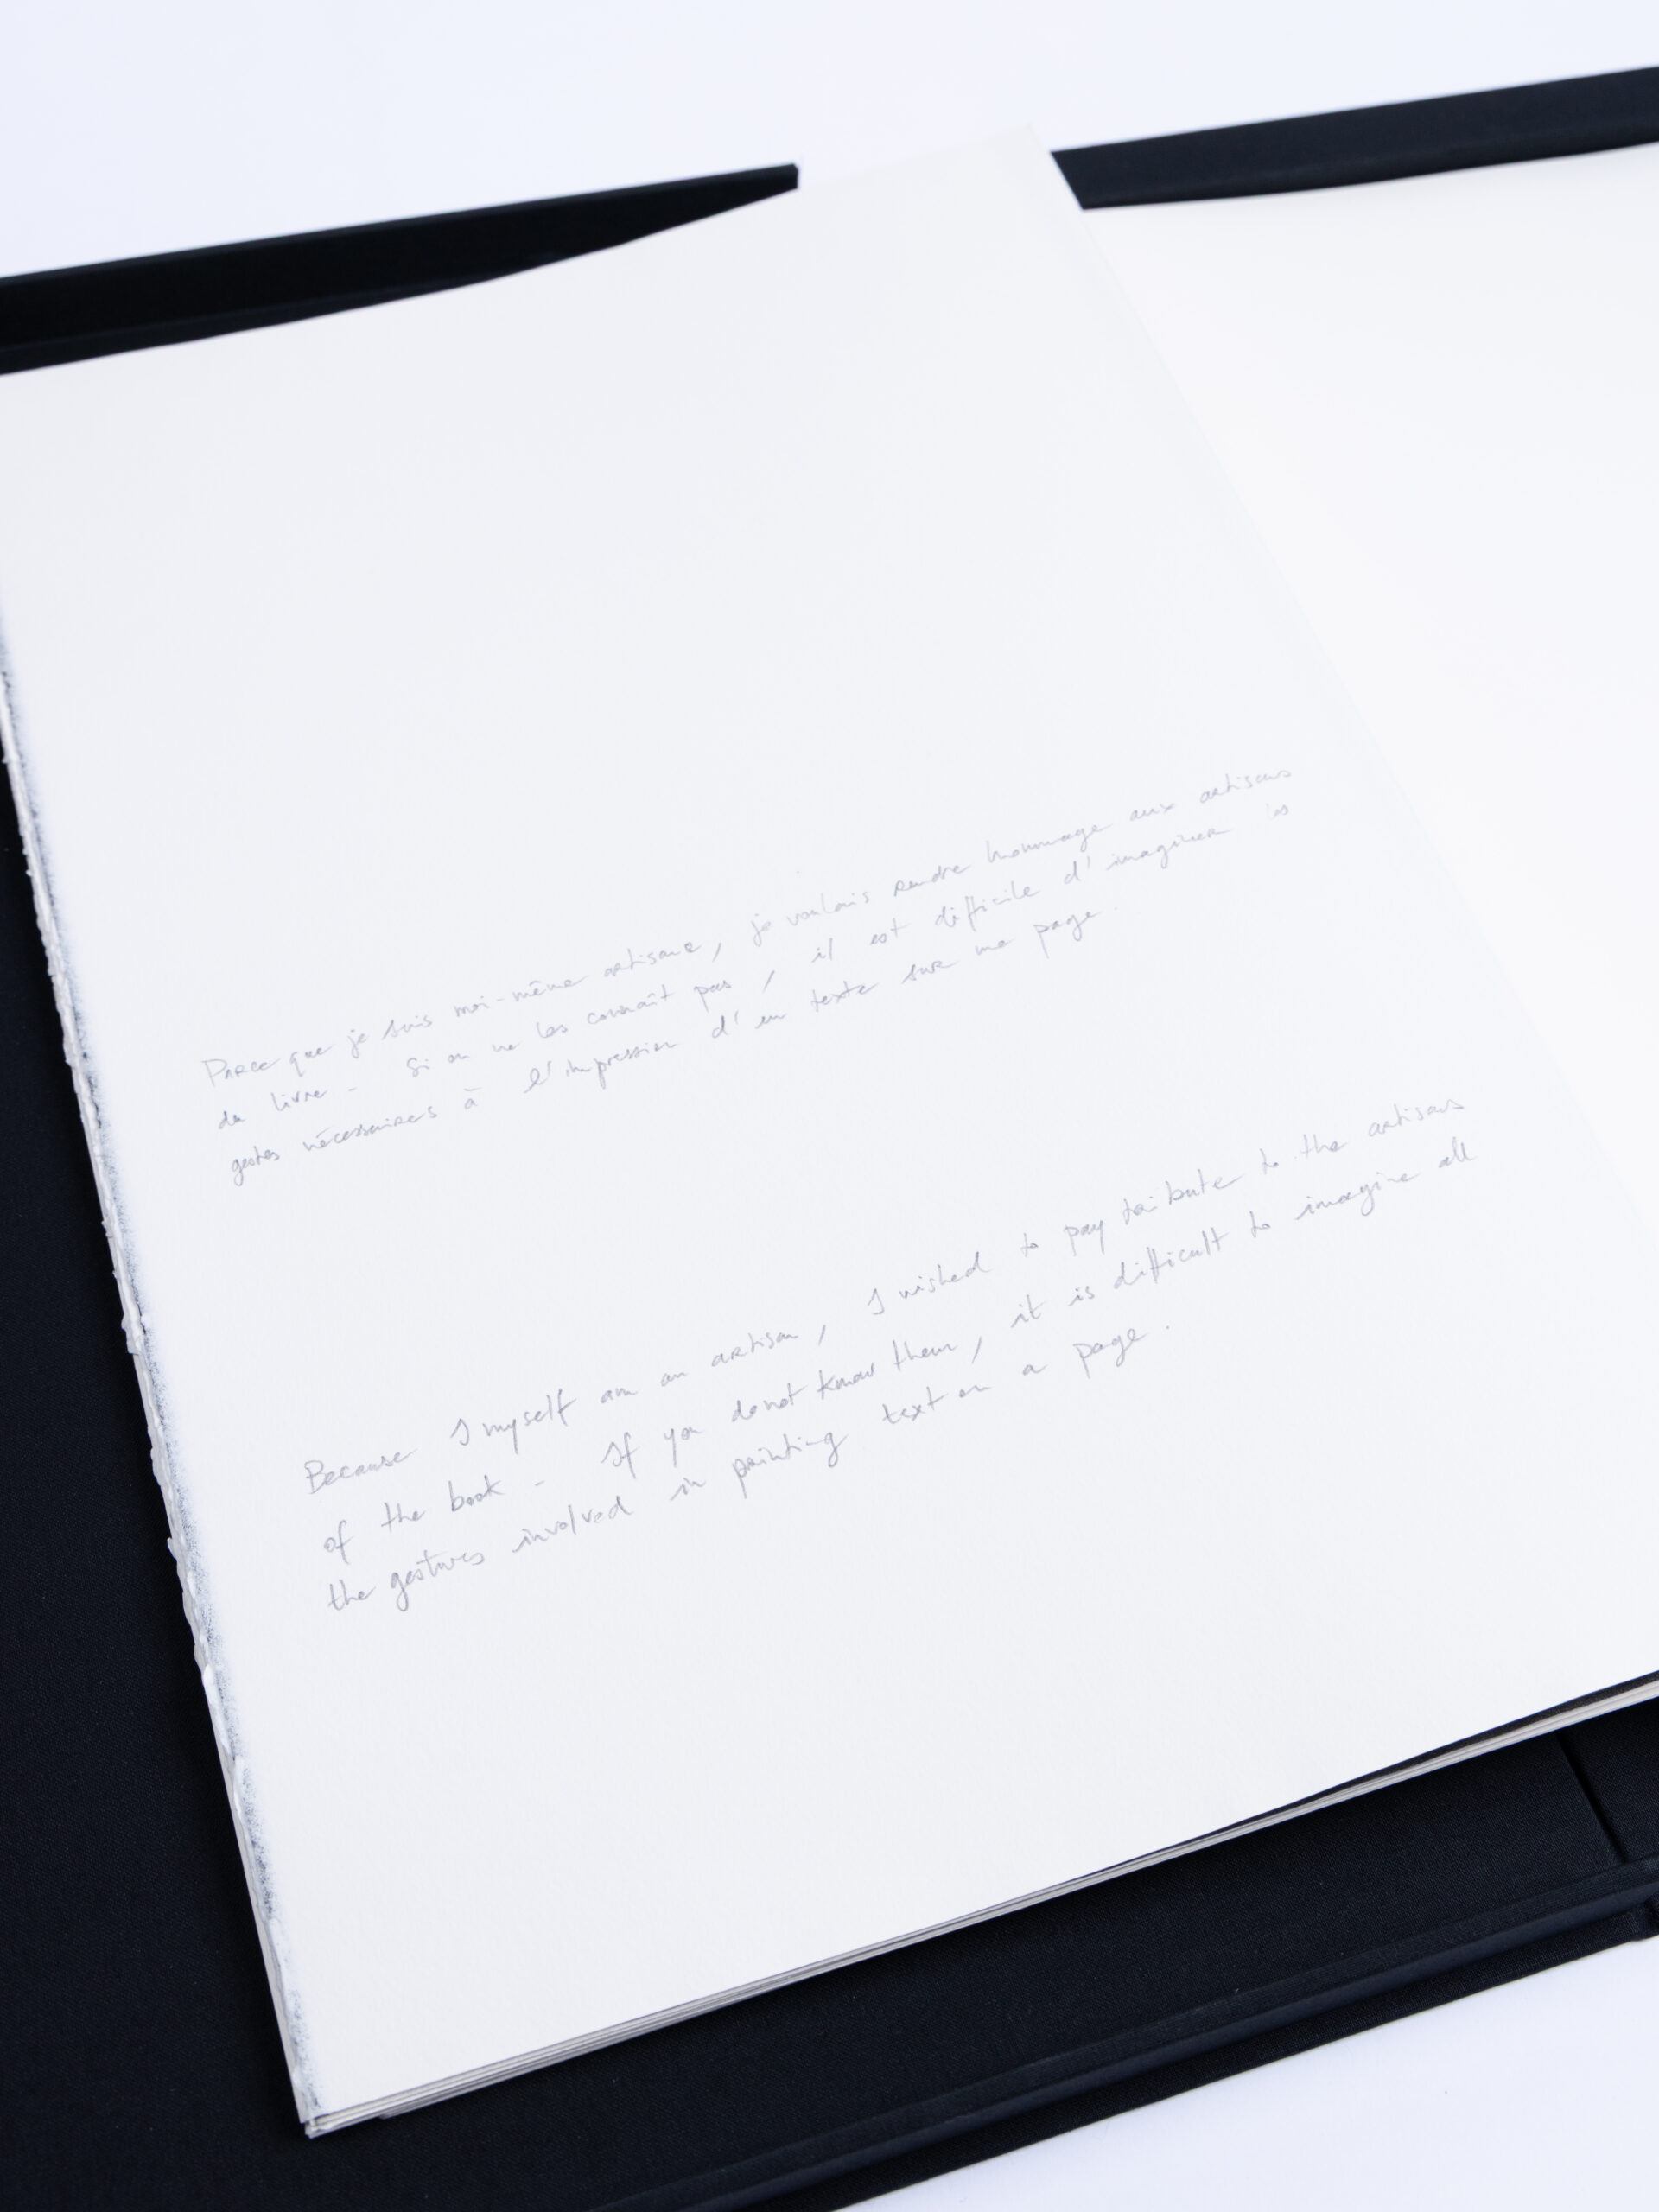 Parce que je suis moi-même artisane, je voulais rendre hommage aux artisans
du livre - Si on ne les connaît pas, il est difficile d'imaginer les
gestes nécessaires à l'impression d'un texte sur une page.
Because I myself am an artisan, I wished to pay tribute to the artisans
of the book - If you do not know them, it is difficult to imagine all
the gestures involved in printing text on a page.